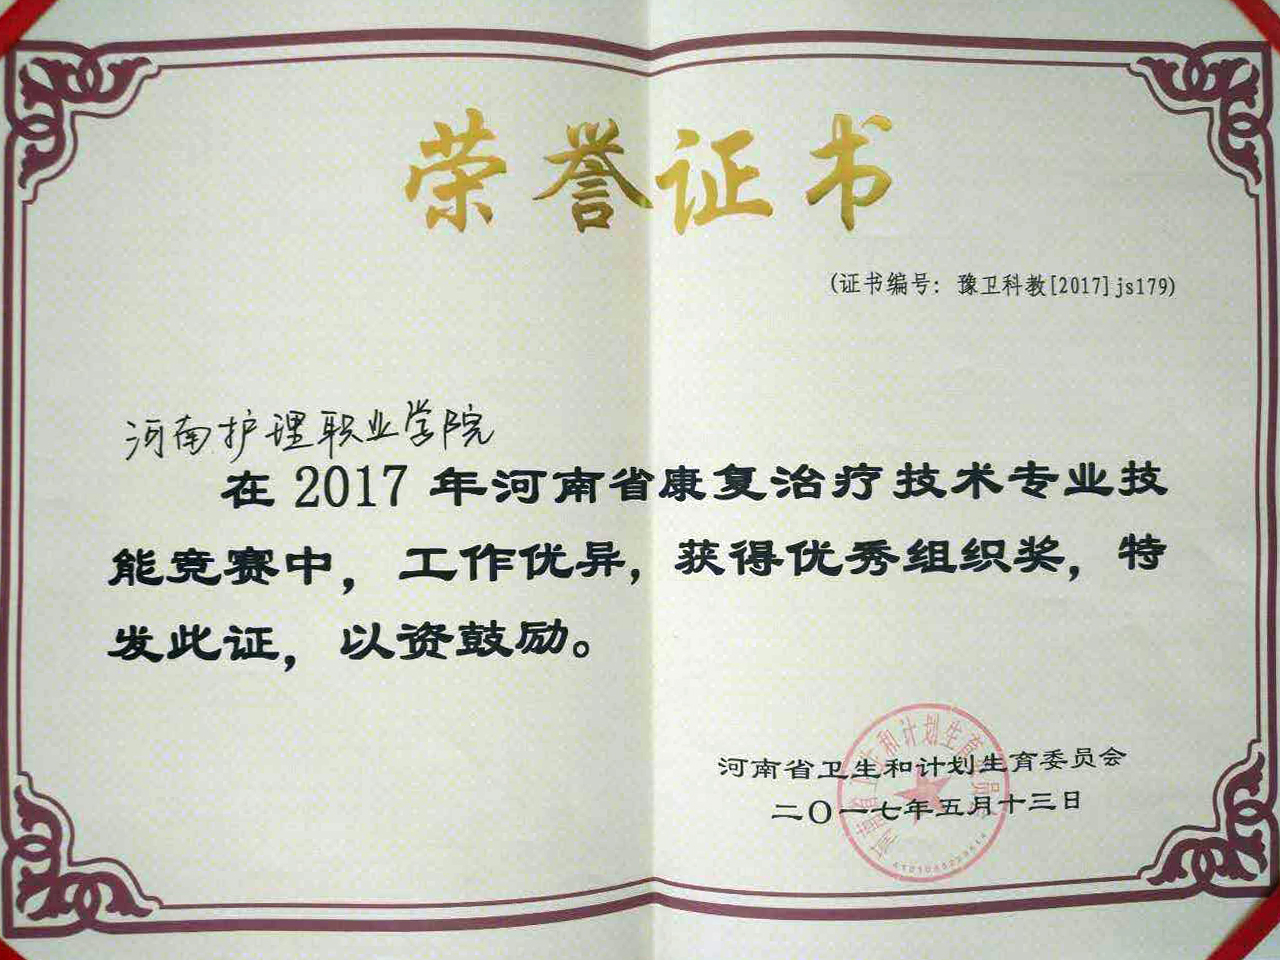 荣誉证书
(证书编号: 豫卫科教[2017]js179)
河南护理职业学院
在2017年河南省康复治疗技术专业技
能竞赛中，工作优异，获得优秀组织奖，特
发此证，以资鼓励。
河南省卫生和计划生育委员会
二〇一七年五月十三日